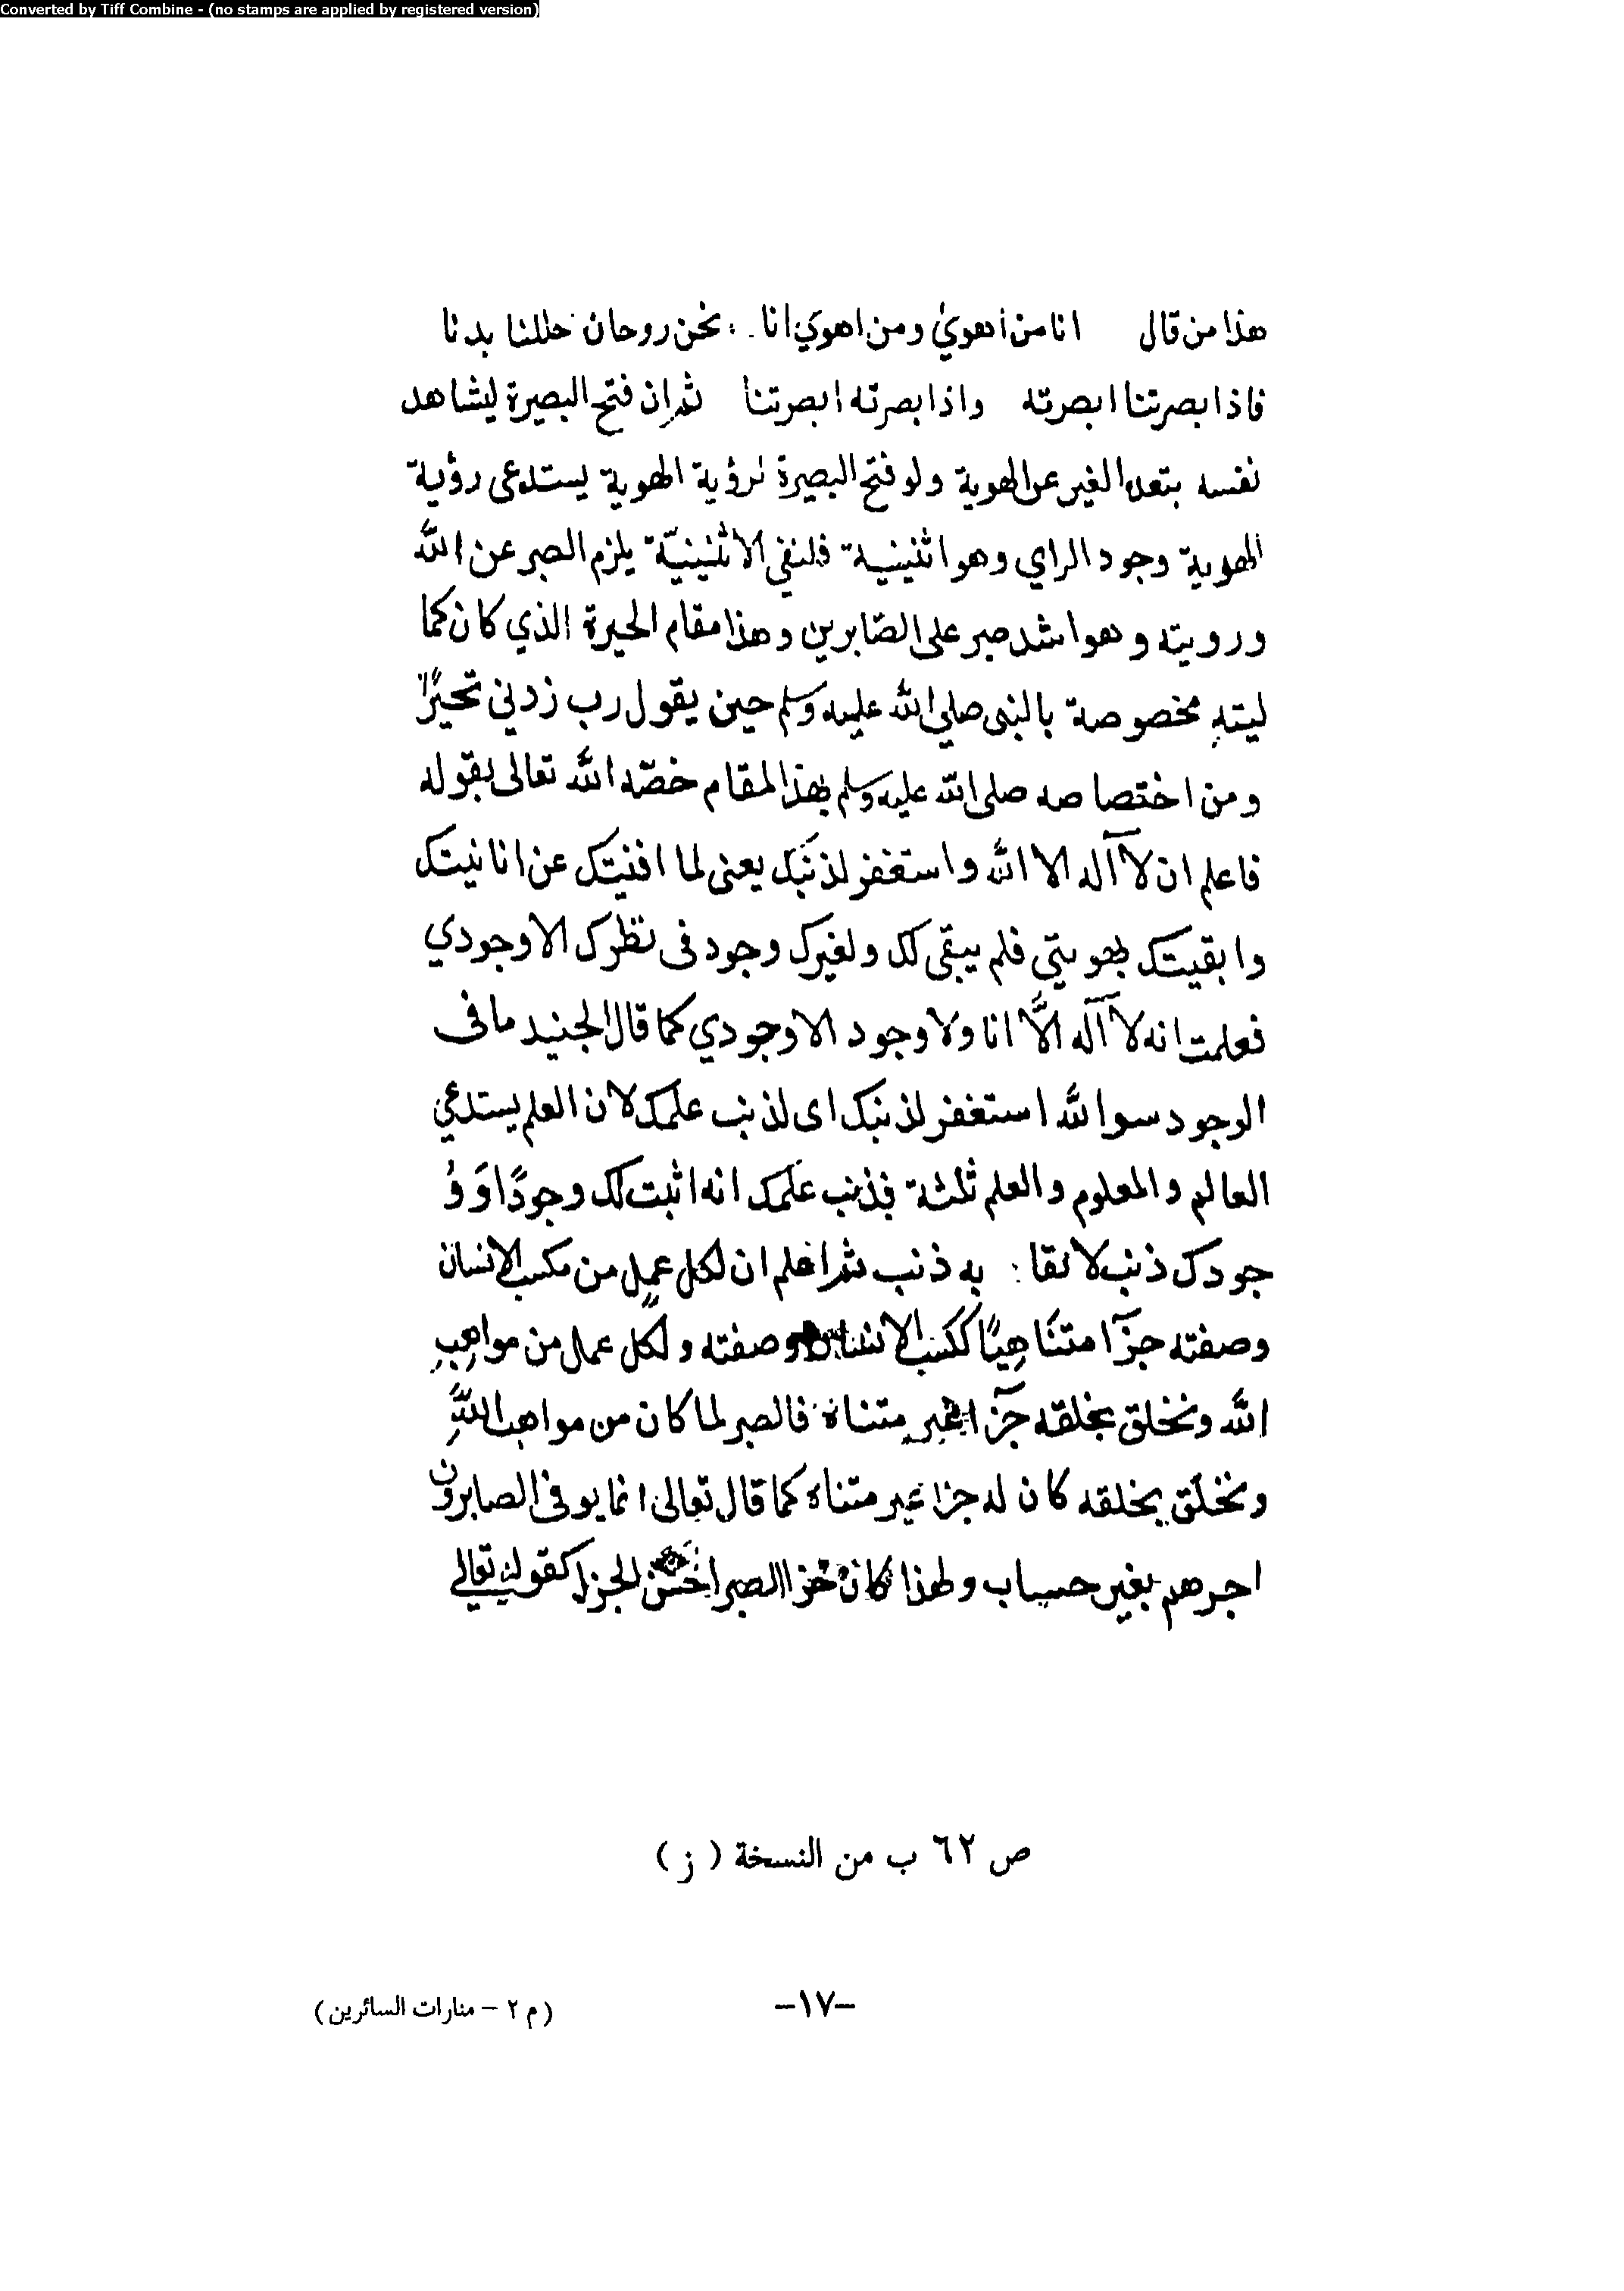 Converted by Tiff Combine - (no stamps are applied by registered version)
هذا من قال انا من أهوي ومن اهوي انا . : نحن روحان حللنا بدنا
فاذا بصرتنا ابصرته واذا بصرته ابصرتنا ثم ان فتح البصيرة ليشاهد
نفسه بتعدد الغير عن الهوية ولو فتح البصيرة لرؤية الهوية يستدعى رؤية
الهوية وجود الراي وهو اثنينية فلنفي الاثنينيّة يلزم الصبر عن اللّه
ورويته وهو اشد صبر على الصّابرين وهذا مقام الحيرة الذي كان كما
ليته مخصوصة بالنبى صلي اللّه عليه وسلم حين يقول رب زدني تحيرًا
ومن اختصاصه صلى اللّه عليه وسلم بهذا المقام خصّه اللّه تعالى بقوله
فاعلم ان لآ آله الا اللّه واستغفر لذنبك يعنى لما افنيتك عن انانيتك
وابقيتك بهويتي فلم يبقى لك ولغيرك وجود فى نظرك الا وجودي
فعلمت انه لآ آله الّا انا ولا وجود الا وجودي كما قال الجنيد ما فى
الوجود سوا للّه استغفر لذنبك اى لذنب علمك لان العلم يستدعي
العالم والمعلوم والعلم ثلثة فذنب علمك انه اثبت لك وجودًا وَوُ
جودك ذنب لا تقا : به ذنب ثم اعلم ان لكل عملٍ من مكسب الانسان
وصفته جزآ متناهيًا ككسب الانسان وصفته ولكل عمال من مواهبِ
اللّه وتخلق بخلقه جزآ غير متناه فالصبر لما كان من مواهب اللّهِ
وتخلّق بخلقه كان له جزا غير متناه كما قال تعالى انما يوفى الصابرون
اجرهم بغير حساب ولهذا كان جزا الصبر احسن الجزا كقوله تعالي
ص ٦٢ ب من النسخة ( ز )
–١٧–
( م ٢ – منارات السائرين )